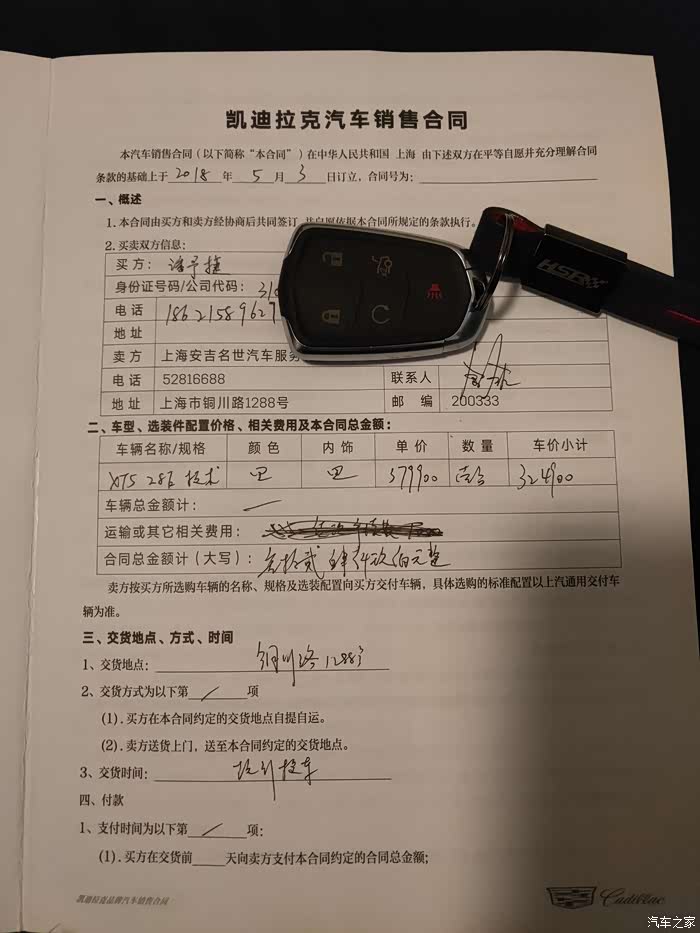 凯迪拉克汽车销售合同
本汽车销售合同(以下简称“本合同”)在中华人民共和国 上海 由下述双方在平等自愿并充分理解合同
条款的基础上于 2018 年 5 月 3 日订立,合同号为:
一、概述
1.本合同由买方和卖方经协商后共同签订,并自愿依据本合同所规定的条款执行。
2.买卖双方信息:
买方:
身份证号码/公司代码: 310
电话 18621589627
地址
卖方 上海安吉名世汽车服务
电话 52816688 联系人
地址 上海市铜川路1288号 邮编 200333
二、车型、选装件配置价格、相关费用及本合同总金额:
车辆名称/规格 颜色 内饰 单价 数量 车价小计
XTS 28E 技术 379900 324900
车辆总金额计:
运输或其它相关费用:
合同总金额计(大写):
卖方按买方所选购车辆的名称、规格及选装配置向买方交付车辆,具体选购的标准配置以上汽通用交付车
辆为准。
三、交货地点、方式、时间
1、交货地点: 铜川路1288号
2、交货方式为以下第 项
(1).买方在本合同约定的交货地点自提自运。
(2).卖方送货上门,送至本合同约定的交货地点。
3、交货时间:
四、付款
1、支付时间为以下第 项:
(1).买方在交货前 天向卖方支付本合同约定的合同总金额;
凯迪拉克品牌汽车销售合同
Cadillac
HSR
汽车之家